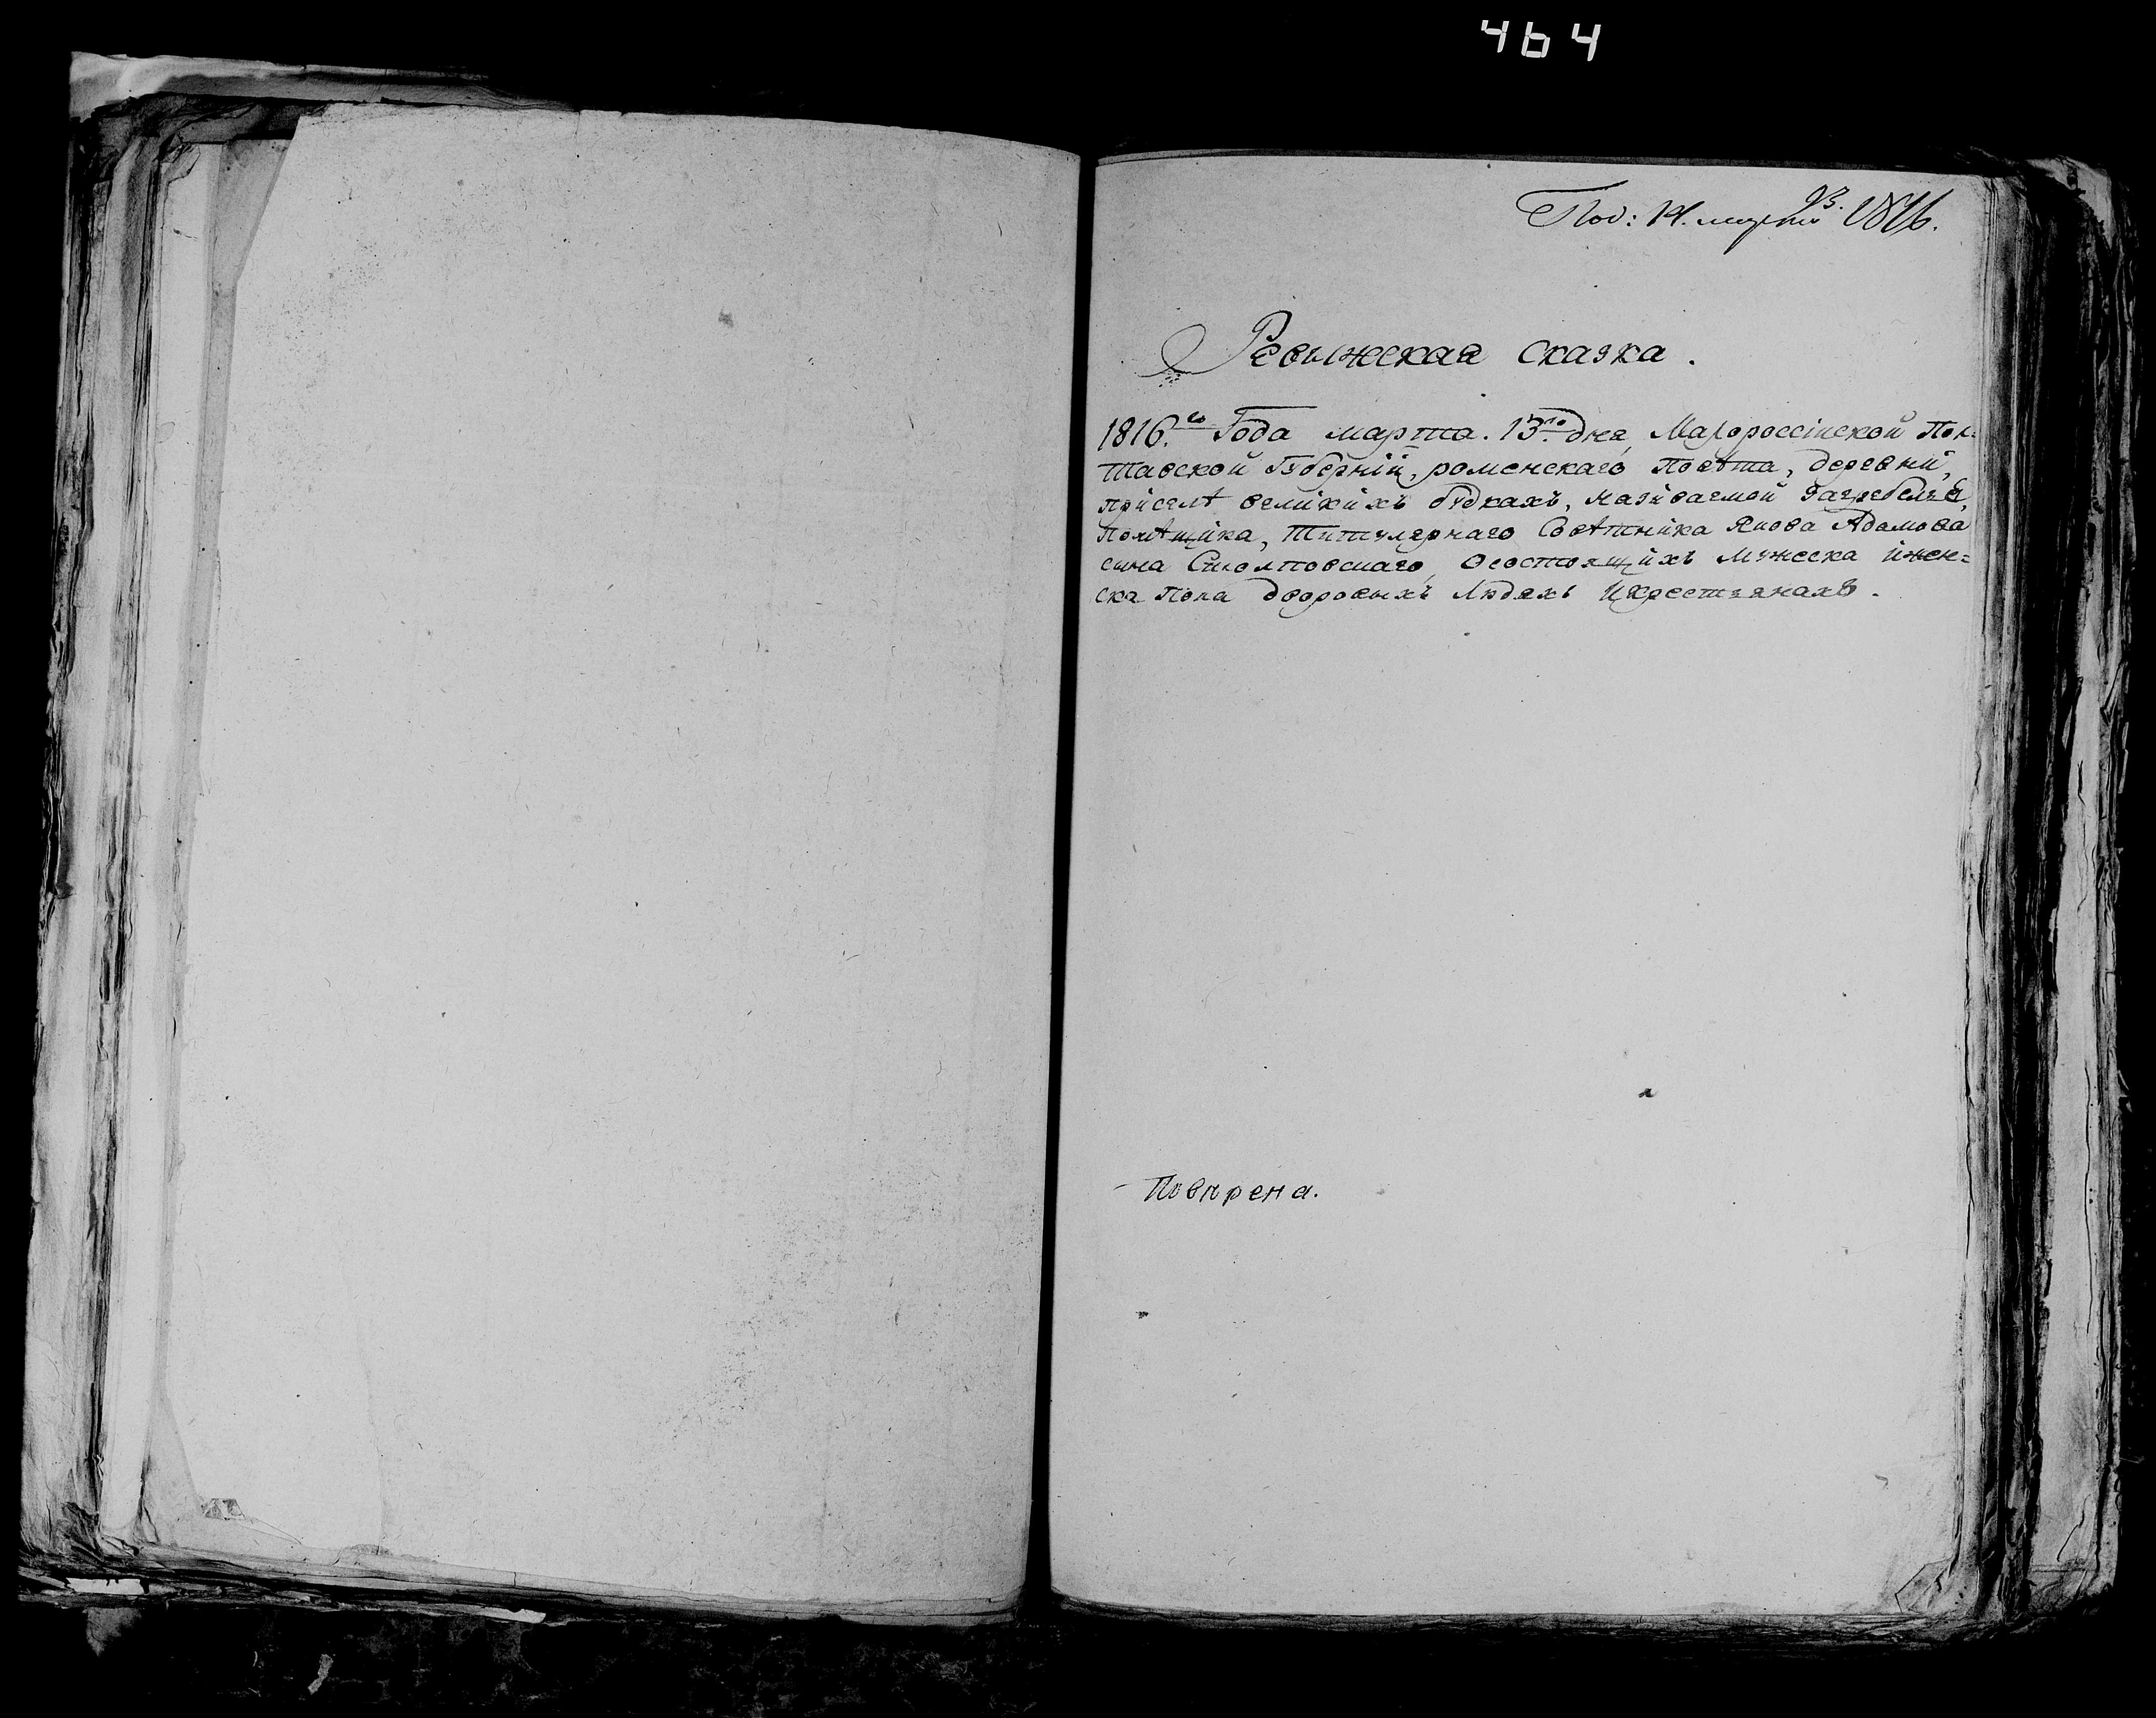 464
Пod: 14. марта 1816.
Ревижская сказка.
1816.го Года марта. 13го дня, Малороссійской Пол:
тавской Губерній, роменскаго Повѣта, деревни,
приселѣ великихъ будкахъ, называемой Загребелье,
Помѣщика, Титулярнаго Совѣтника Якова Адамова
сина осостоящихъ Мужеска ижен=
ска Пола дворовыхъ Людяхъ Икрестянахъ.
Повѣрена.